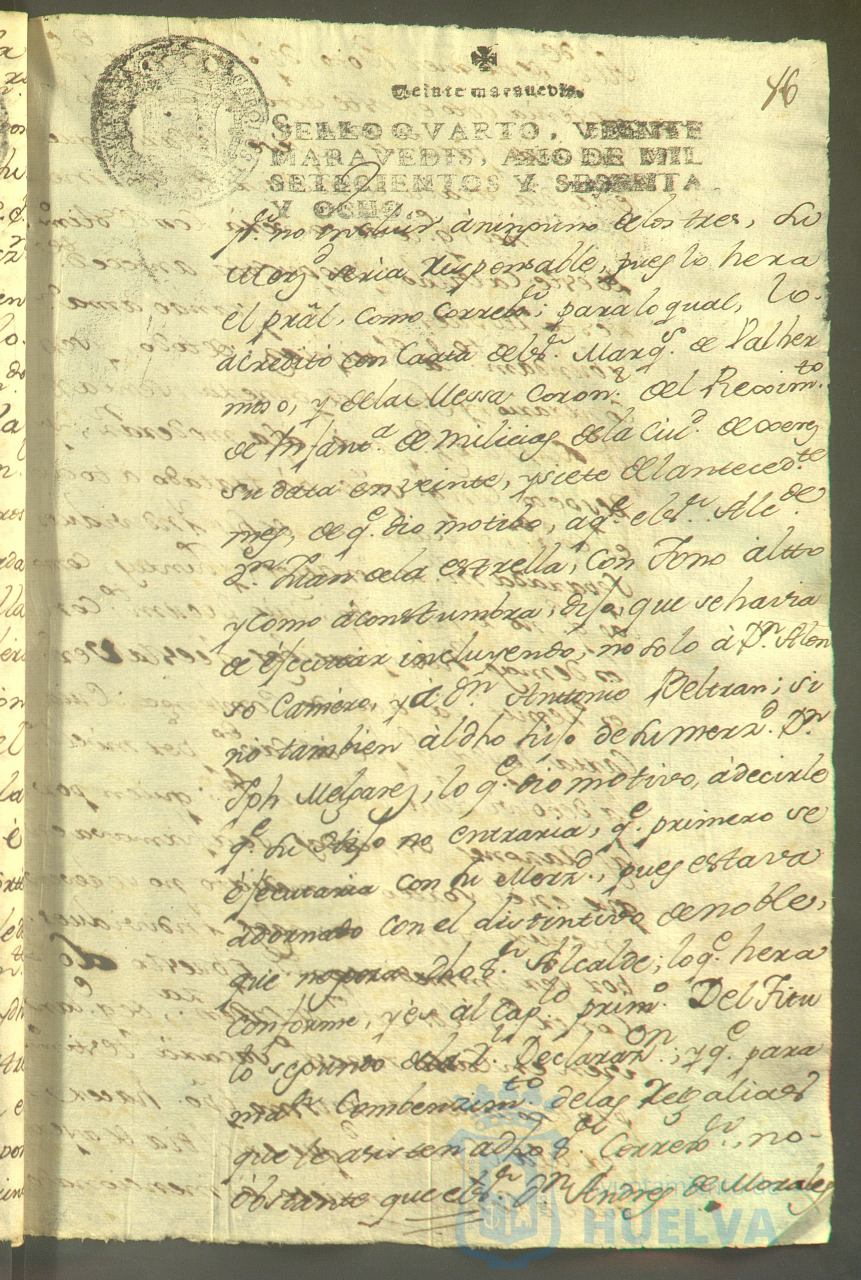 46
Veinte maravedis.
SELLO QVARTO, VEINTE
MARAVEDIS, AÑO DE MIL
SETECIENTOS Y SESENTA
Y OCHO.
pr. no incluir à ninguno de los tres, Su
Merzd. seria Responsable, pues lo hera
el pral, como Corregr.; para lo qual, lo
acreditò con Carta del Sr. Marqs. de Valher
moso, y de la Messa Coron. del Reximto.
de Infanta. de Milicias de la Ciud. de Xerez
su data en veinte, y siete del antecedte.
mes, de qe. dio motibo, a qe. el Sr. Alcde.
Dn. Juan de la estrella, con Tono altto
y como àconstumbra, dijo, que se havia
de efecutar incluyendo, no solo à Dn. Alon
so Camero, y à Dn. Antonio Beltran; si
no tambien àl dho hijo de Su merzd. Dn.
Jph Melgarejo, lo qe. dio motivo, à decirle
qe. Su Hijo no entraria, qe. primero se
éfecutaria con Su Merzd., pues estava
adornado con el distintivo de noble,
que no goza dho Sr. Alcalde; lo qe. hera
Conforme, y es al Capo. primo. Del Titu
lo segundo de la Rl. Declarazon.; y qe. para
mas Combenzimto. de las Regalias
que le asisten a dho Sr. Corregr., no-
obstante que el Sr. Dn. Andres de Morales
Ayuntamiento de
HUELVA